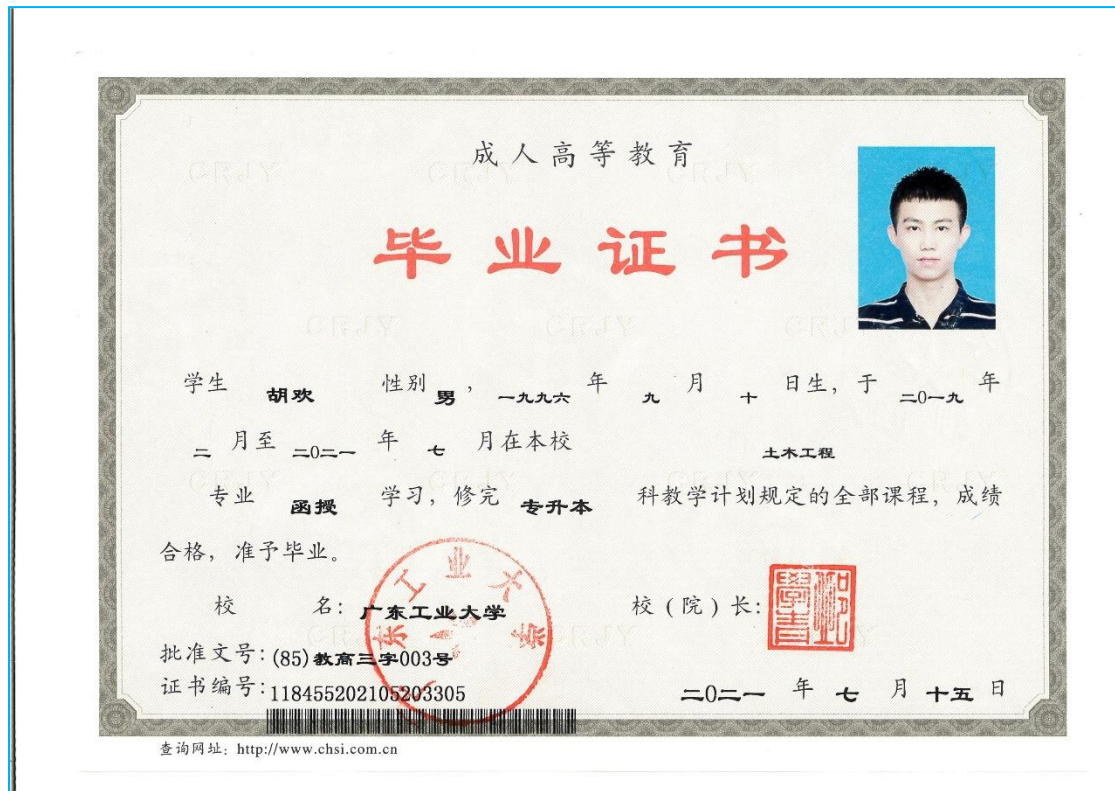 成人高等教育
毕业证书
学生 胡欢 性别 男 , 一九九六 年 九 月 十 日生, 于 二0一九 年
二 月至 二0二一 年 七 月在本校 土木工程
专业 函授 学习, 修完 专升本 科教学计划规定的全部课程, 成绩
合格, 准予毕业。
校 名: 广东工业大学 校(院)长:
广东工业大学
批准文号: (85)教高三字003号
证书编号: 118455202105203305
二0二一 年 七 月 十五 日
查询网址: http://www.chsi.com.cn